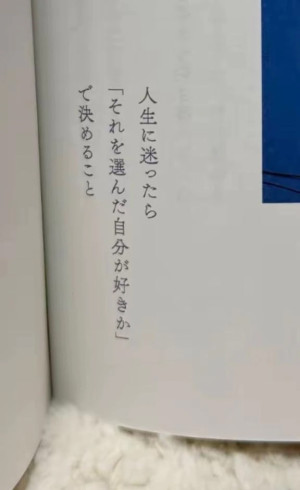 人生に迷ったら
「それを選んだ自分が好きか」
で決めること